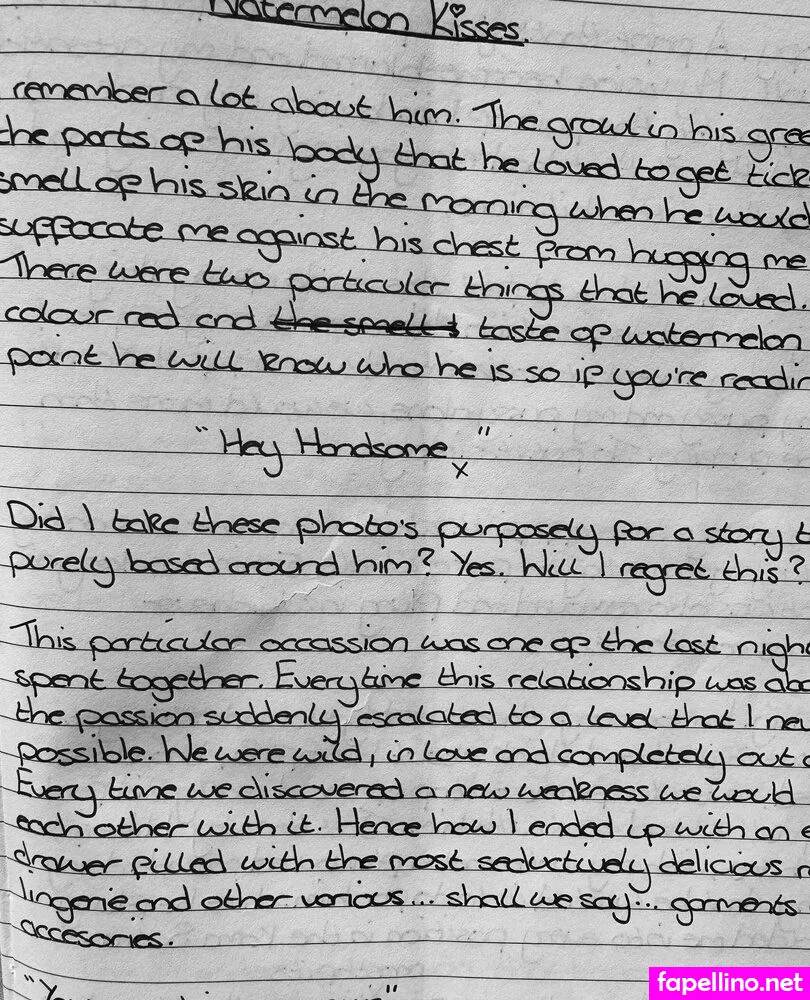 Watermelon Kisses.
remember a lot about him. The growl in his gree
the parts of his body that he loved to get tick
smell of his skin in the morning when he would
suffocate me against his chest from hugging me
There were two particular things that he loved.
colour red and the smell s taste of watermelon
point he will know who he is so if you're readin
"Hey Handsome." x
Did I take these photo's purposely for a story t
purely based around him? Yes. Will I regret this?
This particular occassion was one of the last nigh
spent together. Everytime this relationship was abo
the passion suddenly escalated to a level that I nev
possible. We were wild, in love and completely out o
Every time we discovered a new weakness we would
each other with it. Hence how I ended up with an e
drawer filled with the most seductively delicious
lingerie and other various... shall we say... garments
accesories.
fapellino.net